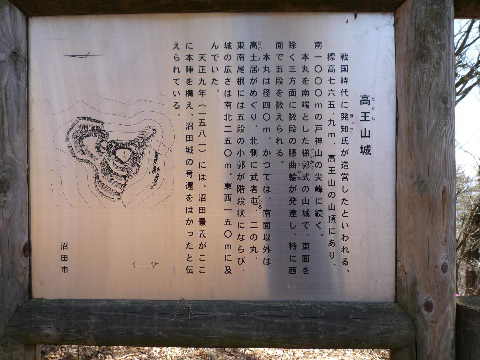 高王山城
戦国時代に発知氏が造営したといわれる。
標高七六五・九m、高王山の山頂にあり、
南一〇〇〇mの戸神山の尖峰に続く。
本丸を南端とした梯郭式の山城で、東面を
除く三方面に数段の腰曲輪が発達し、特に西
面で五段を数えられる。
本丸は径四〇m、かつては、南面以外は
高土居がめぐり、北側に武者屯、二の丸、
東南尾根には五段の小郭が階段状にならび、
城の広さは南北二五〇m、東西一五〇mに及
んでいた。
天正九年(一五八一)には、沼田景義がここ
に本陣を構え、沼田城の奪還をはかったと伝
えられている。
沼田市